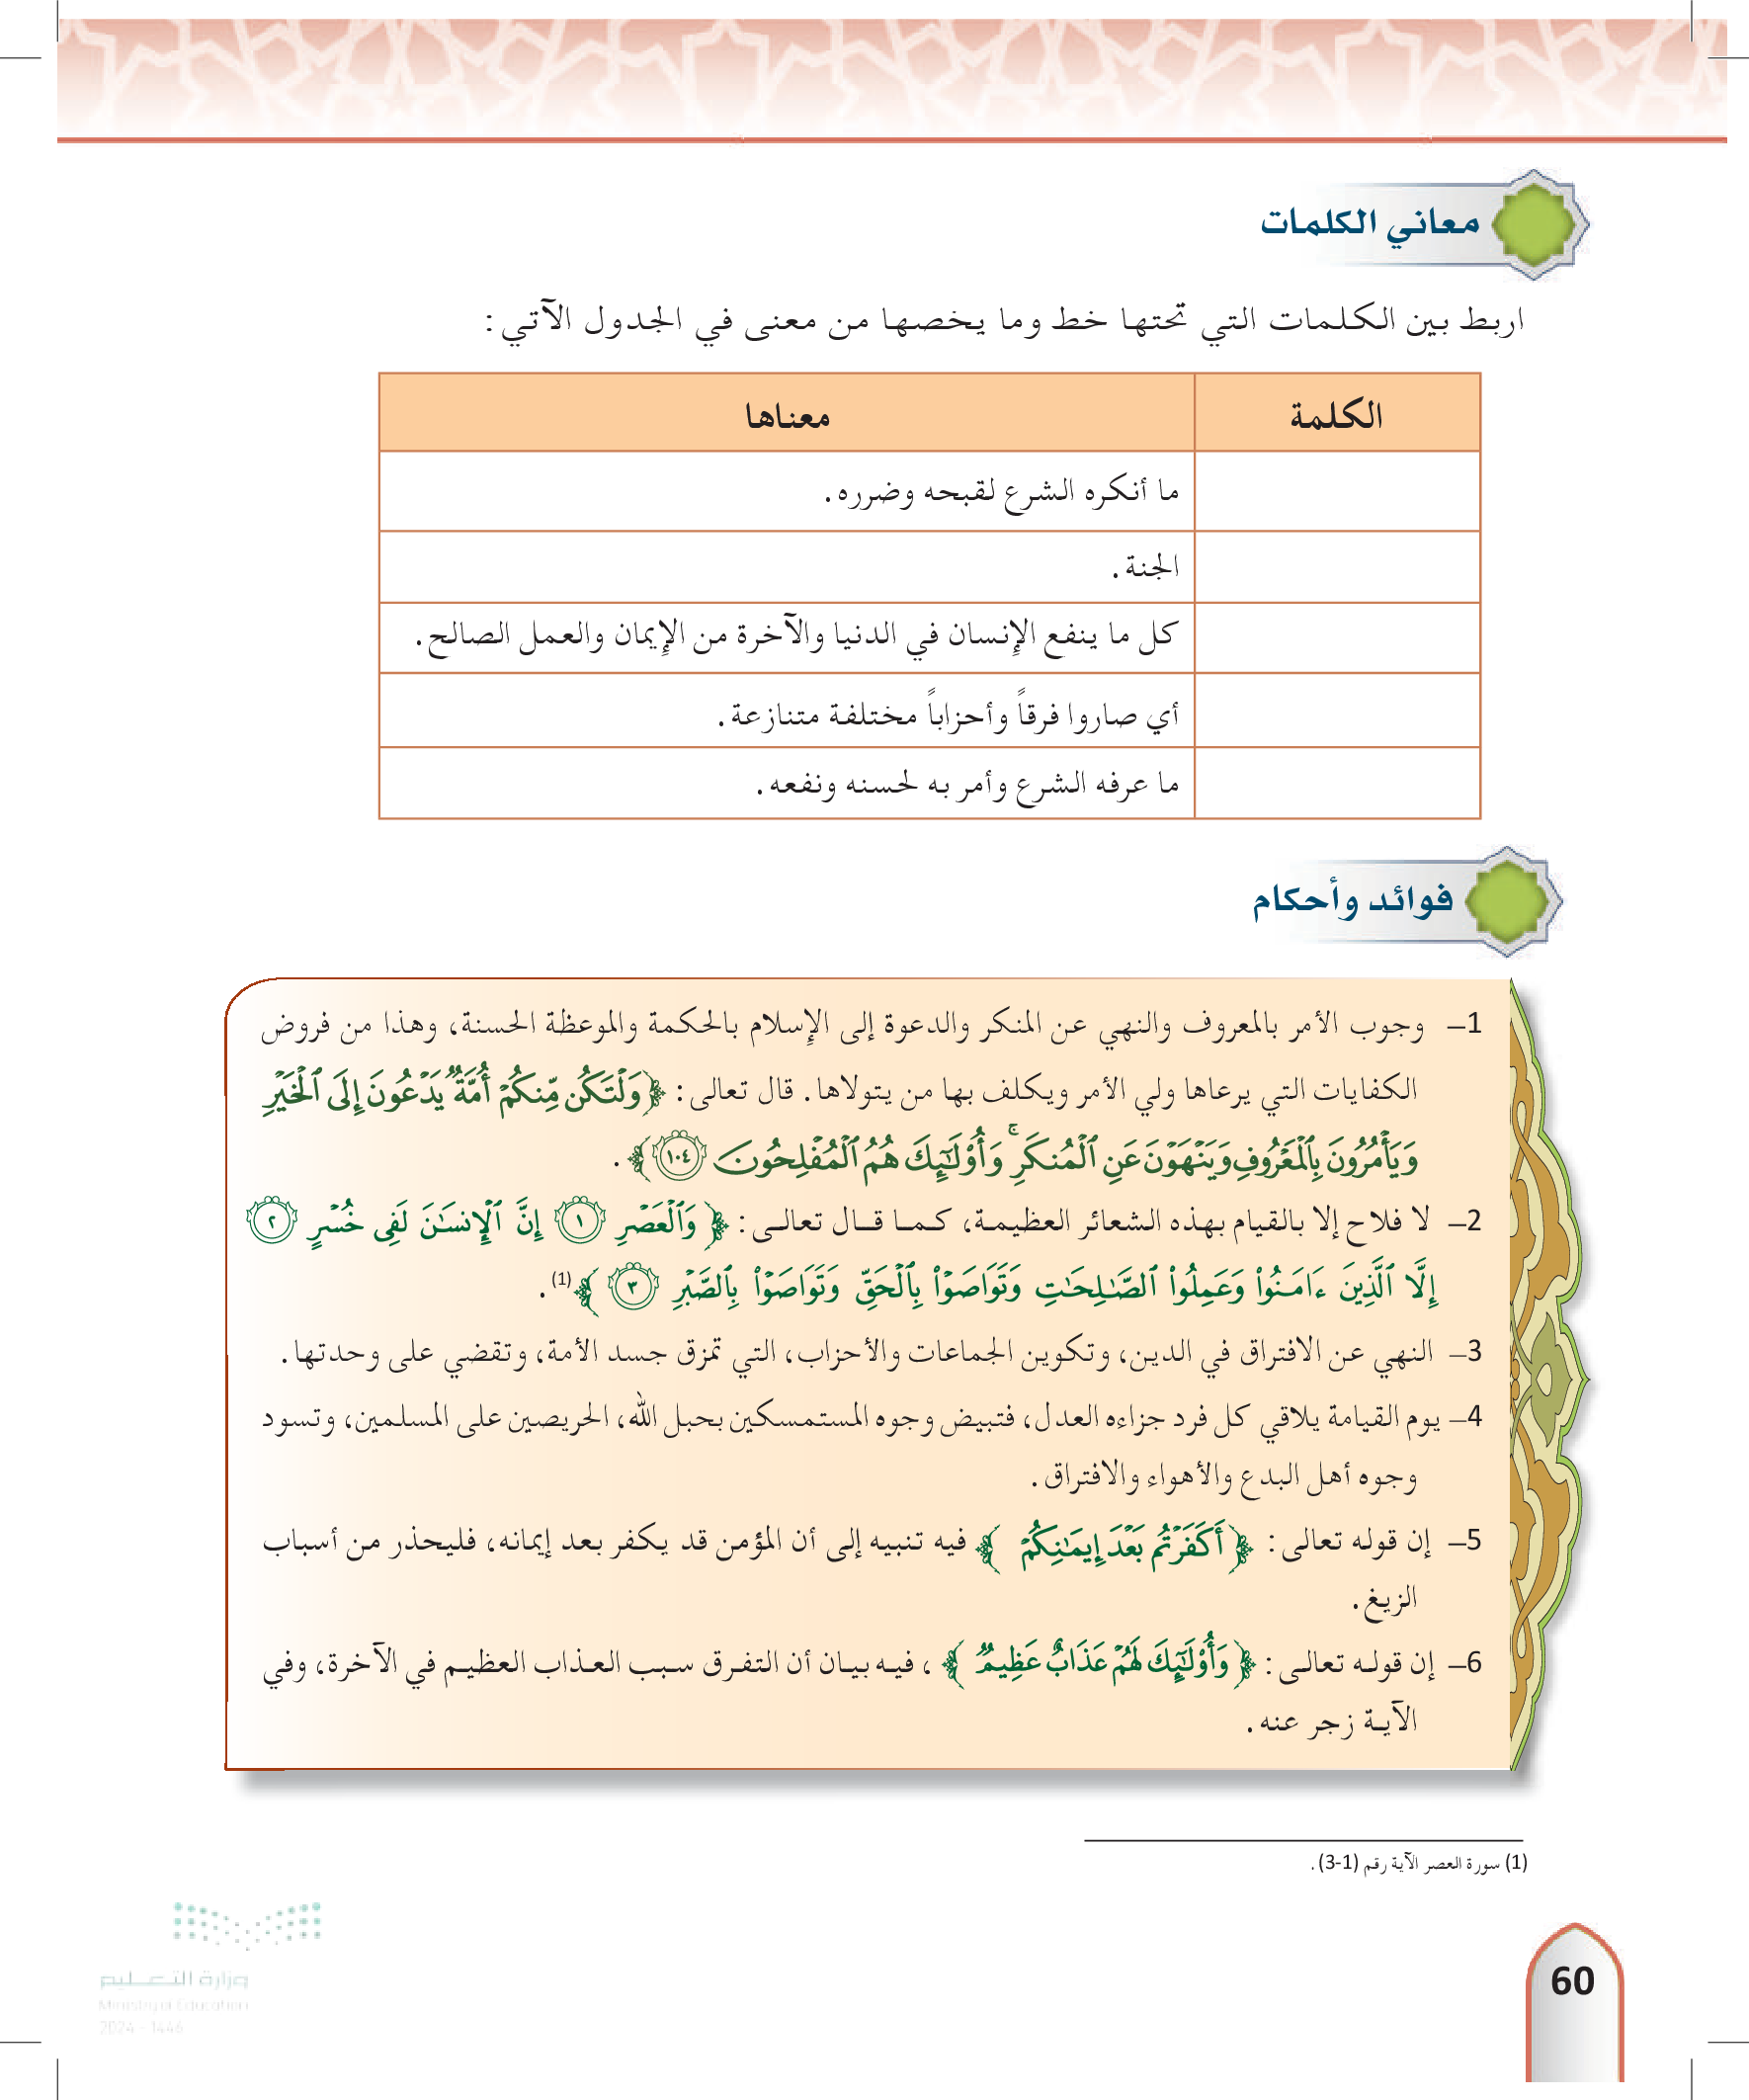 معاني الكلمات
اربط بين الكلمات التي تحتها خط وما يخصها من معنى في الجدول الآتي:
الكلمة معناها
ما أنكره الشرع لقبحه وضرره.
الجنة.
كل ما ينفع الإنسان في الدنيا والآخرة من الإيمان والعمل الصالح.
أي صاروا فرقاً وأحزاباً مختلفة متنازعة.
ما عرفه الشرع وأمر به لحسنه ونفعه.
فوائد وأحكام
1– وجوب الأمر بالمعروف والنهي عن المنكر والدعوة إلى الإسلام بالحكمة والموعظة الحسنة، وهذا من فروض
الكفايات التي يرعاها ولي الأمر ويكلف بها من يتولاها. قال تعالى: ﴿وَلۡتَكُن مِّنكُمۡ أُمَّةٞ يَدۡعُونَ إِلَى ٱلۡخَيۡرِ
وَيَأۡمُرُونَ بِٱلۡمَعۡرُوفِ وَيَنۡهَوۡنَ عَنِ ٱلۡمُنكَرِۚ وَأُوْلَٰٓئِكَ هُمُ ٱلۡمُفۡلِحُونَ ١٠٤﴾.
2– لا فلاح إلا بالقيام بهذه الشعائر العظيمة، كما قال تعالى: ﴿وَٱلۡعَصۡرِ ١ إِنَّ ٱلۡإِنسَٰنَ لَفِي خُسۡرٍ ٢
إِلَّا ٱلَّذِينَ ءَامَنُواْ وَعَمِلُواْ ٱلصَّٰلِحَٰتِ وَتَوَاصَوۡاْ بِٱلۡحَقِّ وَتَوَاصَوۡاْ بِٱلصَّبۡرِ ٣﴾(1).
3– النهي عن الافتراق في الدين، وتكوين الجماعات والأحزاب، التي تمزق جسد الأمة، وتقضي على وحدتها.
4– يوم القيامة يلاقي كل فرد جزاءه العدل، فتبيض وجوه المستمسكين بحبل الله، الحريصين على المسلمين، وتسود
وجوه أهل البدع والأهواء والافتراق.
5– إن قوله تعالى: ﴿أَكَفَرۡتُم بَعۡدَ إِيمَٰنِكُمۡ﴾ فيه تنبيه إلى أن المؤمن قد يكفر بعد إيمانه، فليحذر من أسباب
الزيغ.
6– إن قوله تعالى: ﴿وَأُوْلَٰٓئِكَ لَهُمۡ عَذَابٌ عَظِيمٞ﴾، فيه بيان أن التفرق سبب العذاب العظيم في الآخرة، وفي
الآية زجر عنه.
(1) سورة العصر الآية رقم (1-3).
وزارة التعليم
Ministry of Education
2024 - 1446
60